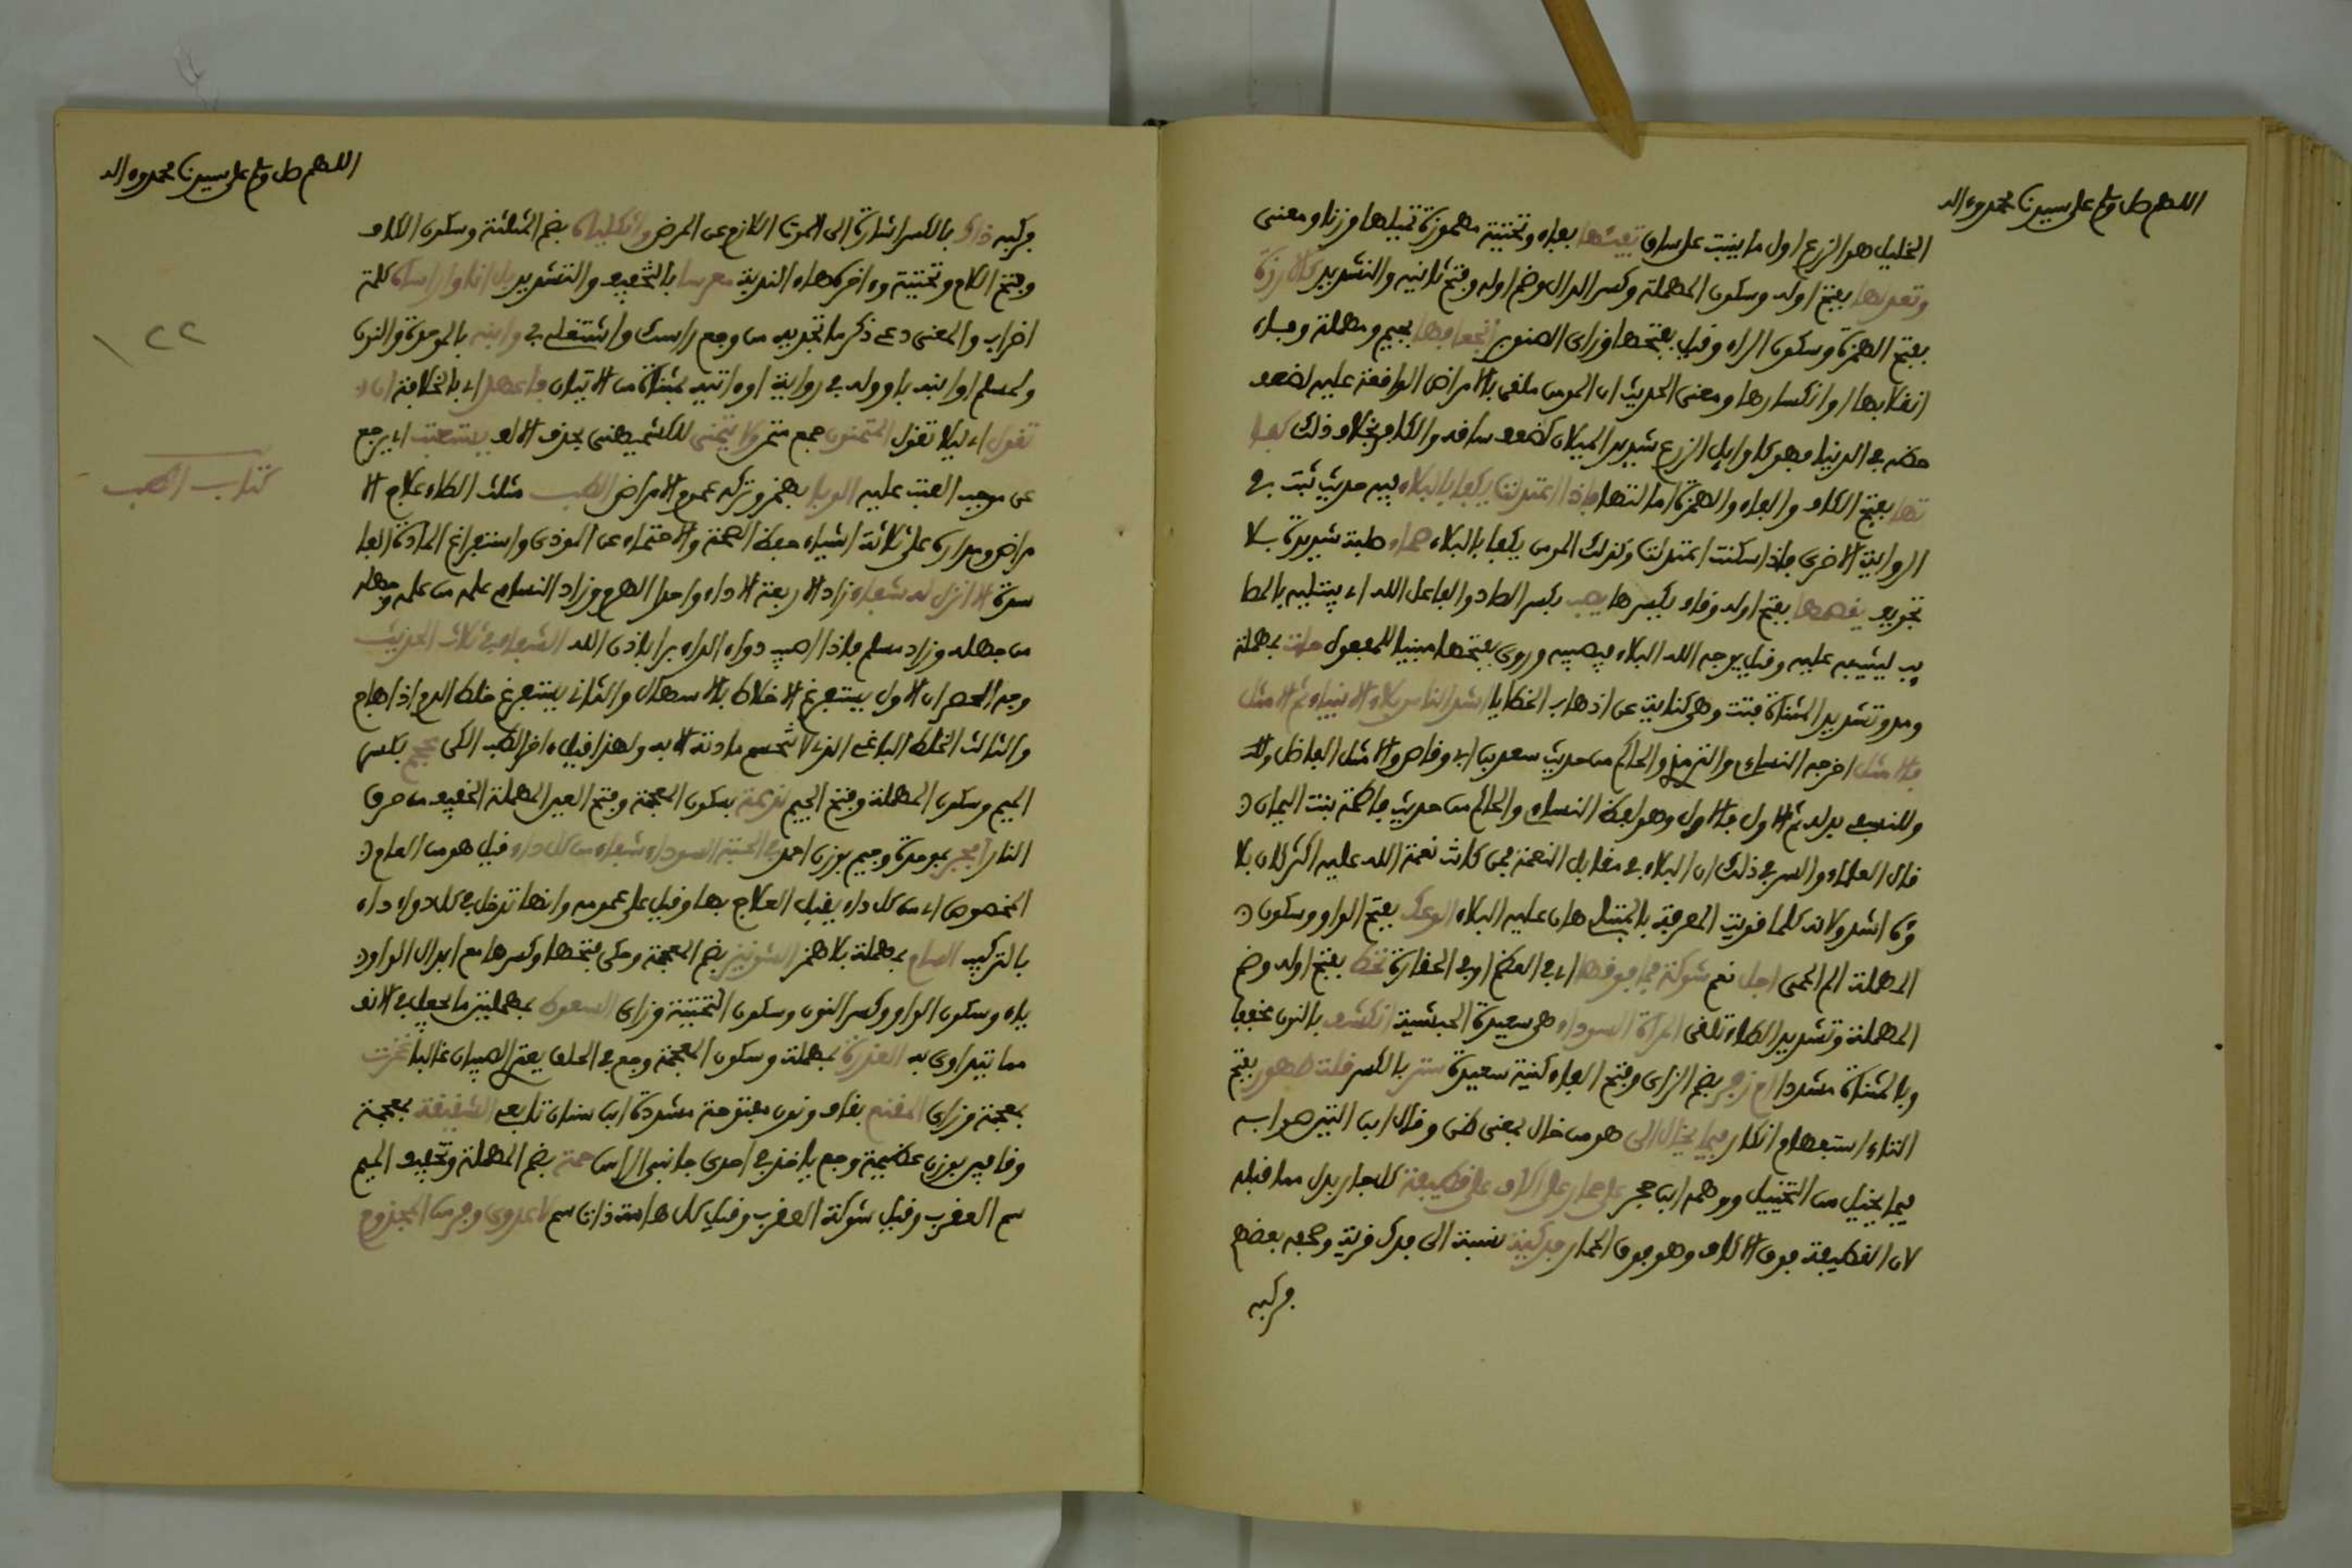 اللهم صل وسلم على سيدنا محمد وءاله
الخليل هو الزرع اول ما ينبت على ساق تفيئها بفاء وتحتية مهموزة تميلها وزنا ومعنى
وتعدلها بفتح اوله وسكون المهملة وكسر الدال وضم اوله وفتح ثانيه والتشديد كالارزة
بفتح الهمزة وسكون الراء وقيل بفتحها وزاي الصنوبر انجعافها بجيم ومهملة وفاء
انقلابها او انكسارها ومعنى الحديث ان المومن ملقى بالامراض الواقعة عليه لضعف
حظه في الدنيا فهو كاوايل الزرع شديد الميلان لضعف ساقه والكافر بخلاف ذلك كفا
تها بفتح الكاف والفاء والهمزة امالتها فاذا اعتدلت يكفا بالبلاء فيه حديث ثبت في
الرواية الاخرى فاذا سكنت اعتدلت وكذلك المومن يكفا بالبلاء صماء صلبة شديدة بلا
تجويف يقصمها بفتح اوله وقاف يكسرها يصب بكسر الصاد والفاعل الله اي يبتليه بالمصا
يب ليثيبه عليه وقيل يوجه الله البلاء فيصيبه وروي بفتحها مبنيا للمفعول حات بمهملة
ومد وتشديد المثناة فتت وهي كناية عن اذهاب الخطايا اشد الناس بلاء الانبياء ثم الامثل
فالامثل اخرجه النسايي والترمذي والحاكم من حديث سعد بن ابي وقاص والامثل الفاضل وللـ
وللنسفي بدله ثم الاول فالاول وهو لفظ النسايي والحاكم من حديث فاطمة بنت اليمان
قال العلماء والسر في ذلك ان البلاء في مقابل النعمة فمن كانت نعمة الله عليه اكثر كان بلا
وه اشد ولانه كلما قويت المعرفة بالمبتلي هان عليه البلاء الوعك بفتح الواو وسكون
المهملة الم الحمى اجل نعم شوكة فما فوقها اي في العظم او في الحقارة تحط بفتح اوله وضم
المهملة وتشديد الطاء تلقي المراة السوداء هي سعيرة الحبشية اتكشف بالنون مخففا
وبالمثناة مشددا ام زفر بضم الزاي وفتح الفاء كنية سعيرة ستر بالكسر قلت طهور بفتح
التاء استفهام انكار فيما يخال الي هو من خال بمعنى ظن وقال ابن التين صوابه
فيما يخيل من التخييل ووهمه ابن حجر على حمار على اكاف على قطيفة كل جار بدل مما قبله
لان القطيفة فوق الاكاف وهو فوق الحمار فدكية نسبة الى فدك قرية وصحفه بعضهم
فركبه
اللهم صل وسلم على سيدنا محمد وءاله
فركبه ذاك بالكسر اشارة الى الموت اللازم عن المرض واثكلياه بضم المثلثة وسكون الكاف
وفتح اللام وتحتية وءاخره هاء الندبة معرسا بالتخفيف والتشديد بل انا واراساه كلمة
اضراب والمعنى دعي ذكر ما تجدينه من وجع راسك واشتغلي بي وابنه بالموحدة والنون
ولمسلم او ابنه باو وله في رواية او ءاتيه بمثناة من الاتيان فاعهد اي بالخلافة ان لا
تقول اي ليلا تقول المتمنون جمع متمن ولا يتمنى للكشميهني بحذف الالف يستعتب اي يرجع
عن موجب العتب عليه الوبا بهمز وتركه عموم الامراض الطب مثلث الطاء علاج الا
مراض ومداره على ثلاثة اشياء حفظ الصحة والاحتماء عن الموذي واستفراغ المادة الفا
سدة الا انزل له شفاء زاد الاربعة الا داء واحدا الهرم وزاد النسايي علمه من علمه وجهله
من جهله وزاد مسلم فاذا اصيب دواء الداء برا باذن الله الشفاء في ثلاث الحديث
وجه الحصر ان الاول يستفرغ الاخلاط بالاسهال والثاني يستفرغ خلط الدم اذا هاج
والثالث الخلط الباغي الذي لا تحسم مادته الا به ولهذا قيل ءاخر الطب الكي محجم بكسر
الميم وسكون المهملة وفتح الجيم لذعة بسكون المعجمة وفتح العين المهملة الخفيف من حرق
النار ابجر بموحدة وجيم بوزن احمد في الحبة السوداء شفاء من كل داء قيل هو من العام
الخصوص اي من كل داء يقبل العلاج بها وقيل على عمومه وانها تدخل في كل دواء داء
بالتركيب السام بمهملة بلا همز الشونيز بضم المعجمة وحكي فتحها وكسرها مع ابدال الواو
ياء وسكون الواو وكسر النون وسكون التحتية وزاي السعوط بمهملتين ما يجعل في الانف
مما يتداوى به العذرة بمهملة وسكون المعجمة وجع في الحلق يعتري الصبيان غالبا غمزت
بمعجمة وزاي المقنع بقاف ونون مفتوحة مشددة ابن سنان تابعي الشقيقة بمعجمة
وقافين بوزن عظيمة وجع ياخذ في احدى جانبي الراس حمة بضم المهملة وتخفيف الميم
سم العقرب وقيل شوكة العقرب وقيل كل هامة ذات سم لا عدوى وفر من المجذوم
١٢٢
كتاب الطب